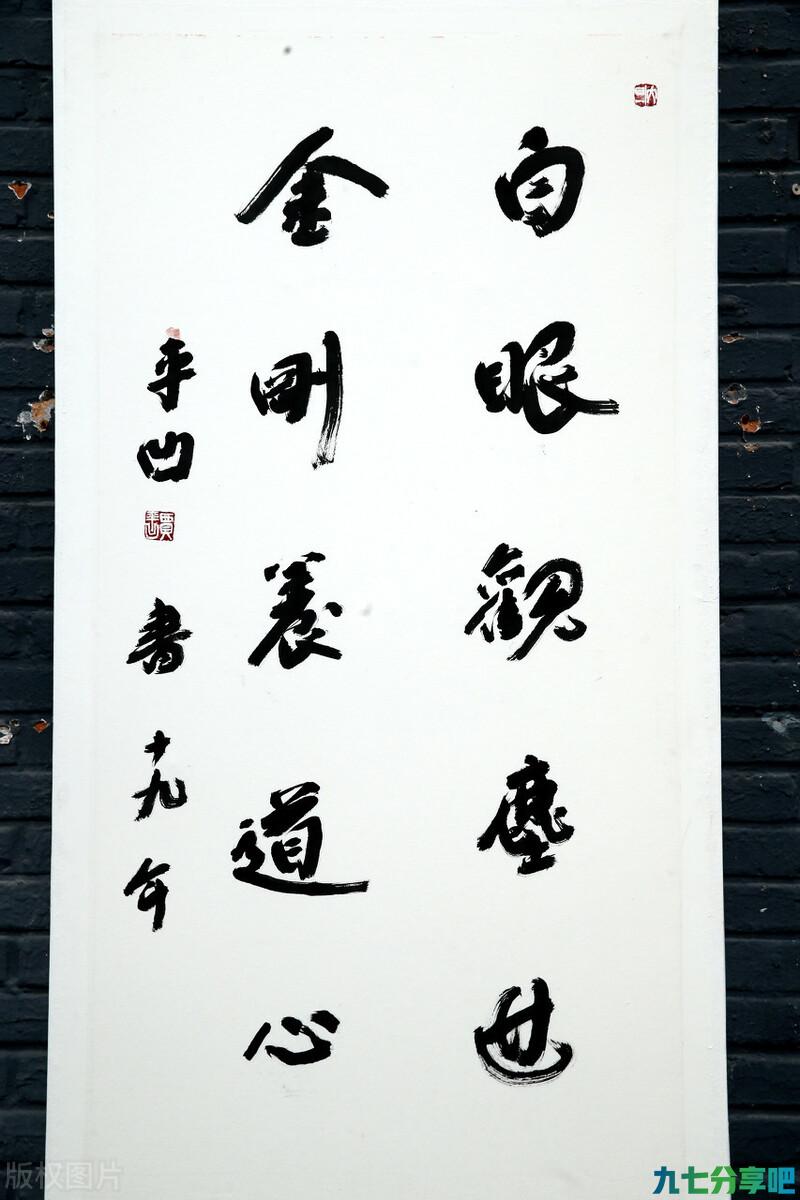 白眼觀塵世
金剛養道心
平凹
書十九年
版权图片
九七分享吧